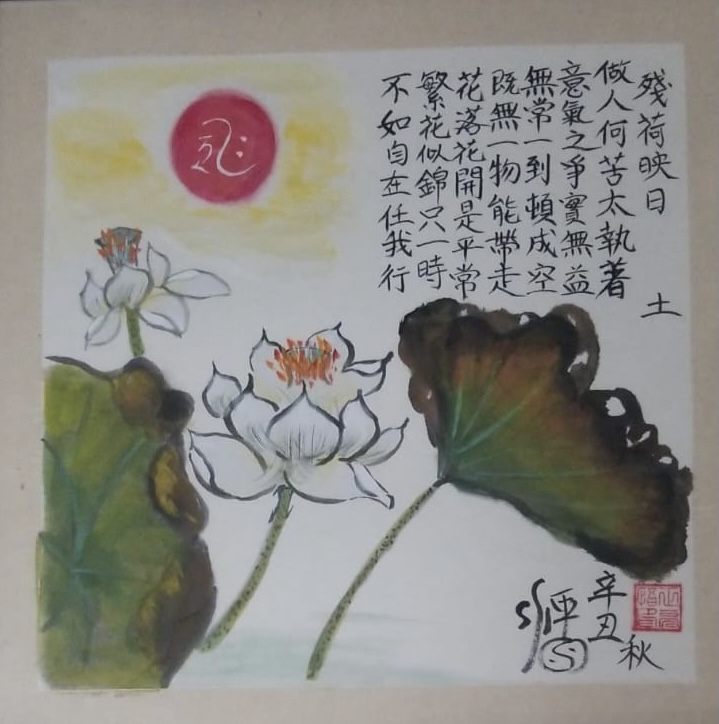 殘荷映日
土
做人何苦太執著
意氣之爭實無益
無常一到頓成空
既無一物能帶走
花落花開是平常
繁花似錦只一時
不如自在任我行
辛丑
秋